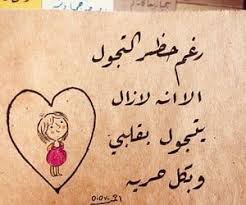 رغم حظر التجول
الا انه لازال
يتجول بقلبي
وبكل حريه